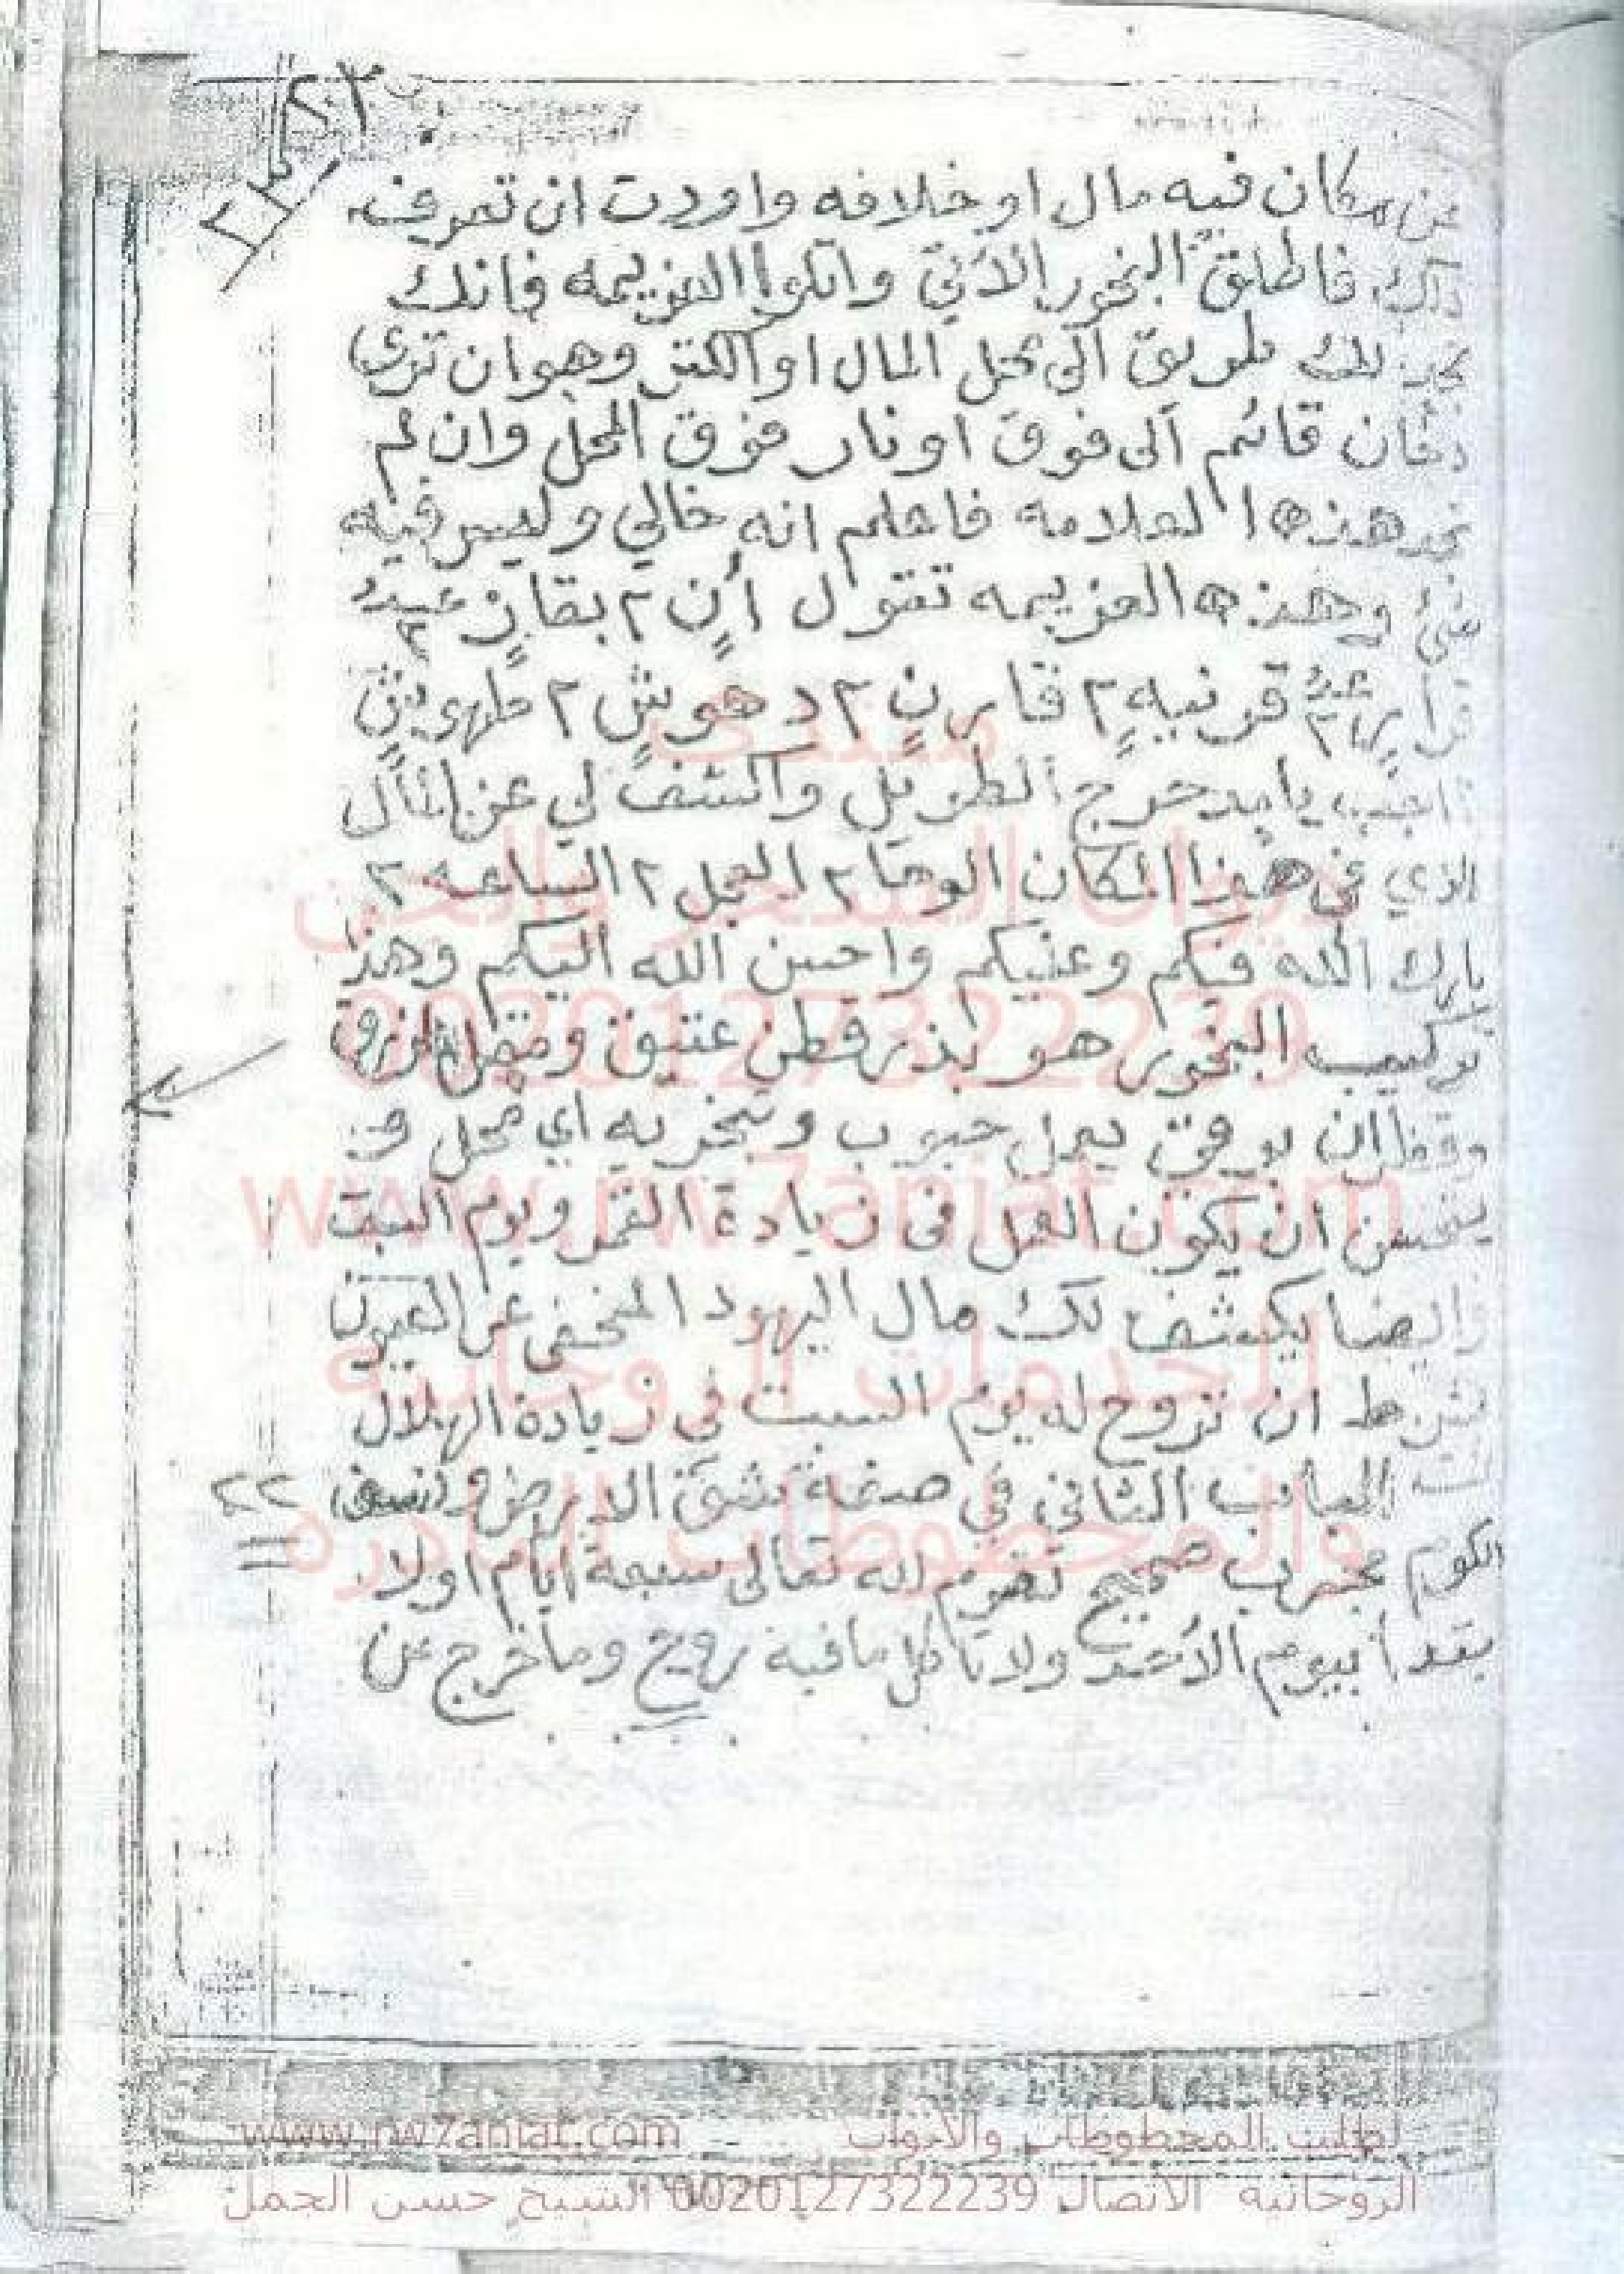 عن مكان فيه مال او خلافه واردت ان تعرف
ذلك فاطلق البخور الاتي واتلوا العزيمه فانك
تجد لك طريق الى محل المال او الكنز وهو ان ترى
دخان قائم الى فوق او نار فوق المحل وان لم
تجد هذه العلامه فاعلم انه خالي وليس فيه
شئ وهذه العزيمه تقول أنٍ ٢ بقازٍ عدد ٢
عدد ٢ قرنيهٍ ٢ فارنٍ ٢ دهوشٍ ٢ طهويشٍ
اجب يا بدحرج الطويل واكشف لي عن المال
الذي في هذا المكان الوحا ٢ العجل ٢ الساعه ٢
بارك الله فيكم وعليكم واحسن الله اليكم وهذ
تركيب البخور هو بذر قطن عتيق ومقل ازرق
يعمل حبوب وتبخر به اي محل
يستحسن ان يكون العمل في زيادة القمر ويوم السبت
وايضا يكشف لك مال اليهود المخفى عن العيون
بشرط ان تروح له يوم السبت في زيادة الهلال
٢٢ الباب الثاني في صفة شق الارض ونسف
الكوم مجرب صحيح تصوم لله تعالى سبعة أيام اولا
بيوم الأحد ولا تاكل ما فيه روح وما خرج من
منتدى
www.rw7aniat.com
للخدمات الروحانية
والمخطوطات النادره
0020127322239
لطلب المخطوطات والأبواب www.rw7aniat.com
الروحانية الأتصال 0020127322239 الشيخ حسن الجمل